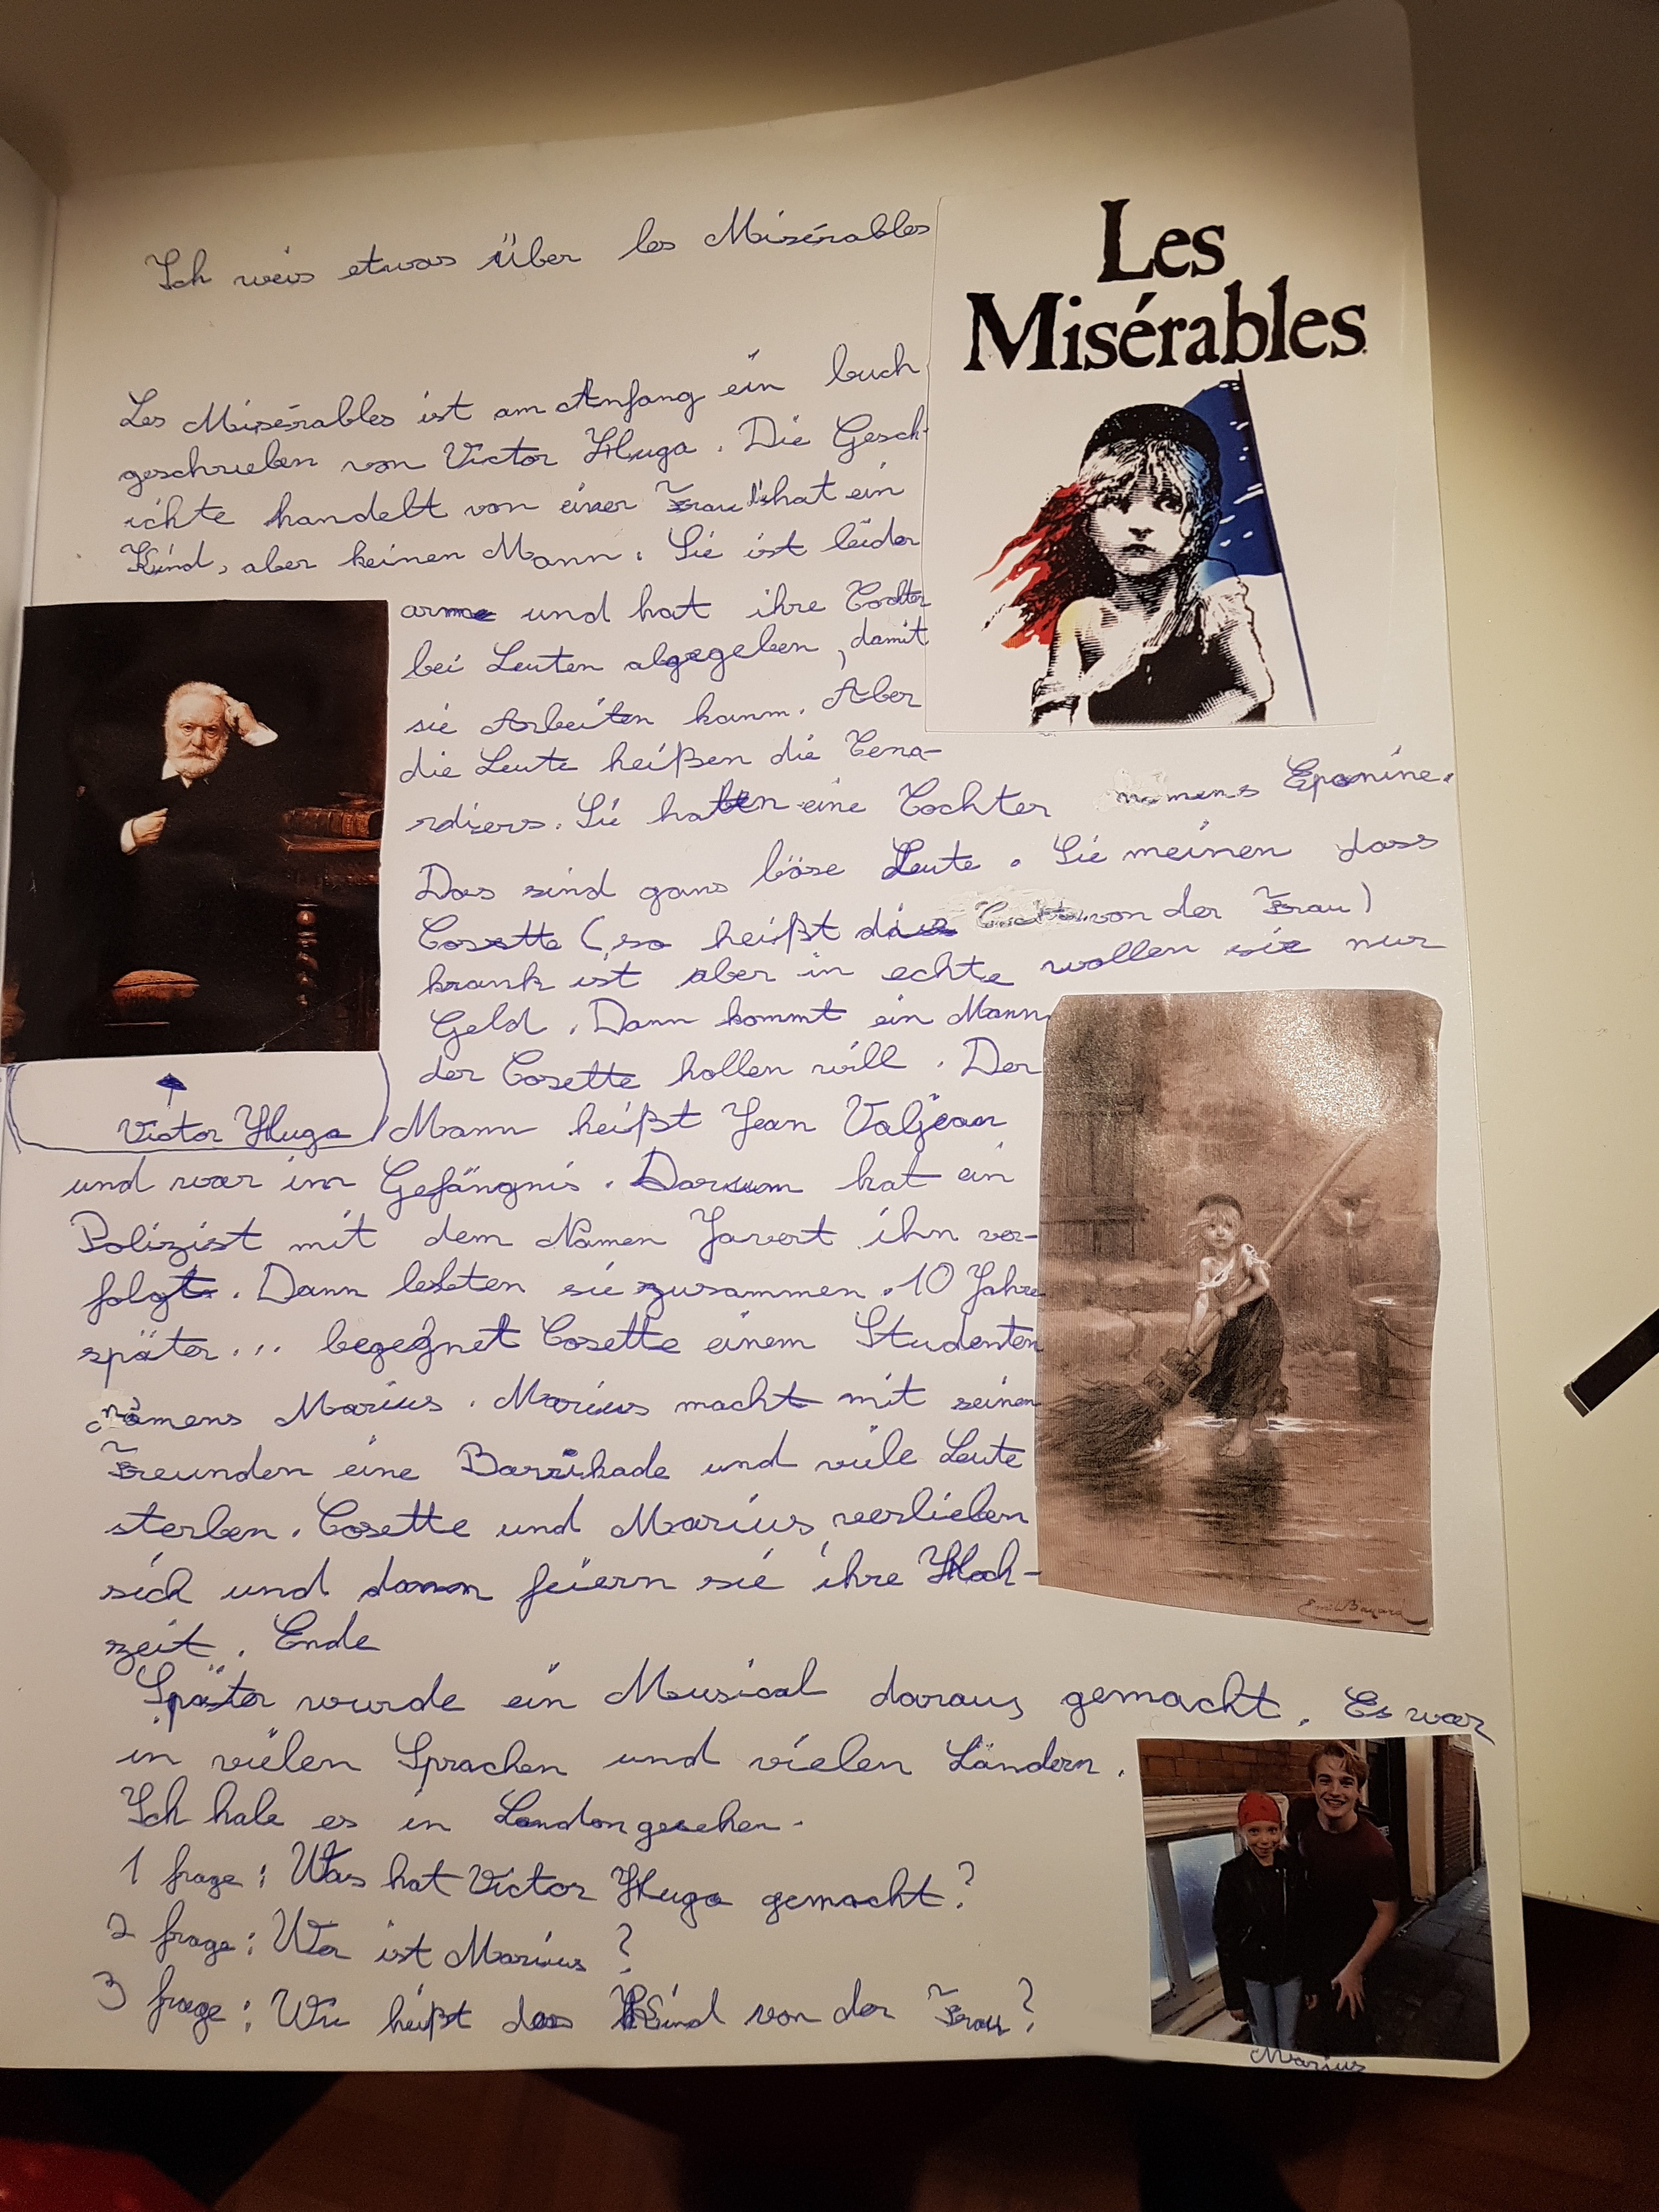 Ich weis etwas Über les Misérables
Les
Misérables
Les Misérables ist am Anfang ein buch
geschrieben von Victor Hugo. Die Gesch-
ichte handelt von einer Frau hat ein
Kind, aber keinen Mann. Sie ist leider
arme und hat ihre Tochter
bei Leuten abgegeben, damit
sie Arbeiten kann. Aber
die Leute heißen die Tena-
rdiers. Sie hatten eine Tochter namens Eponine.
Das sind gans böse Leute. Sie meinen dass
Cosette (so heißt die Tochter von der Frau)
krank ist aber in echte wollen sie nur
Geld. Dann kommt ein Mann
der Cosette hollen will. Der
Victor Hugo
Mann heißt Jean Valjean
und war im Gefängnis. Darum hat ein
Polizist mit dem Namen Javert ihn ver-
folgt. Dann lebten sie zusammen. 10 Jahre
später... begegnet Cosette einem Studenten
namens Marius. Marius macht mit seinen
Freunden eine Barrikade und viele Leute
sterben. Cosette und Marius verlieben
sich und dann feiern sie ihre Hoch-
zeit. Ende
Später wurde ein Musical daraus gemacht. Es war
in vielen Sprachen und vielen Ländern.
Ich habe es in London gesehen.
1 frage: Was hat Victor Hugo gemacht?
2 frage: Wer ist Marius?
3 frage: Wie heißt das Kind von der Frau?
Marius